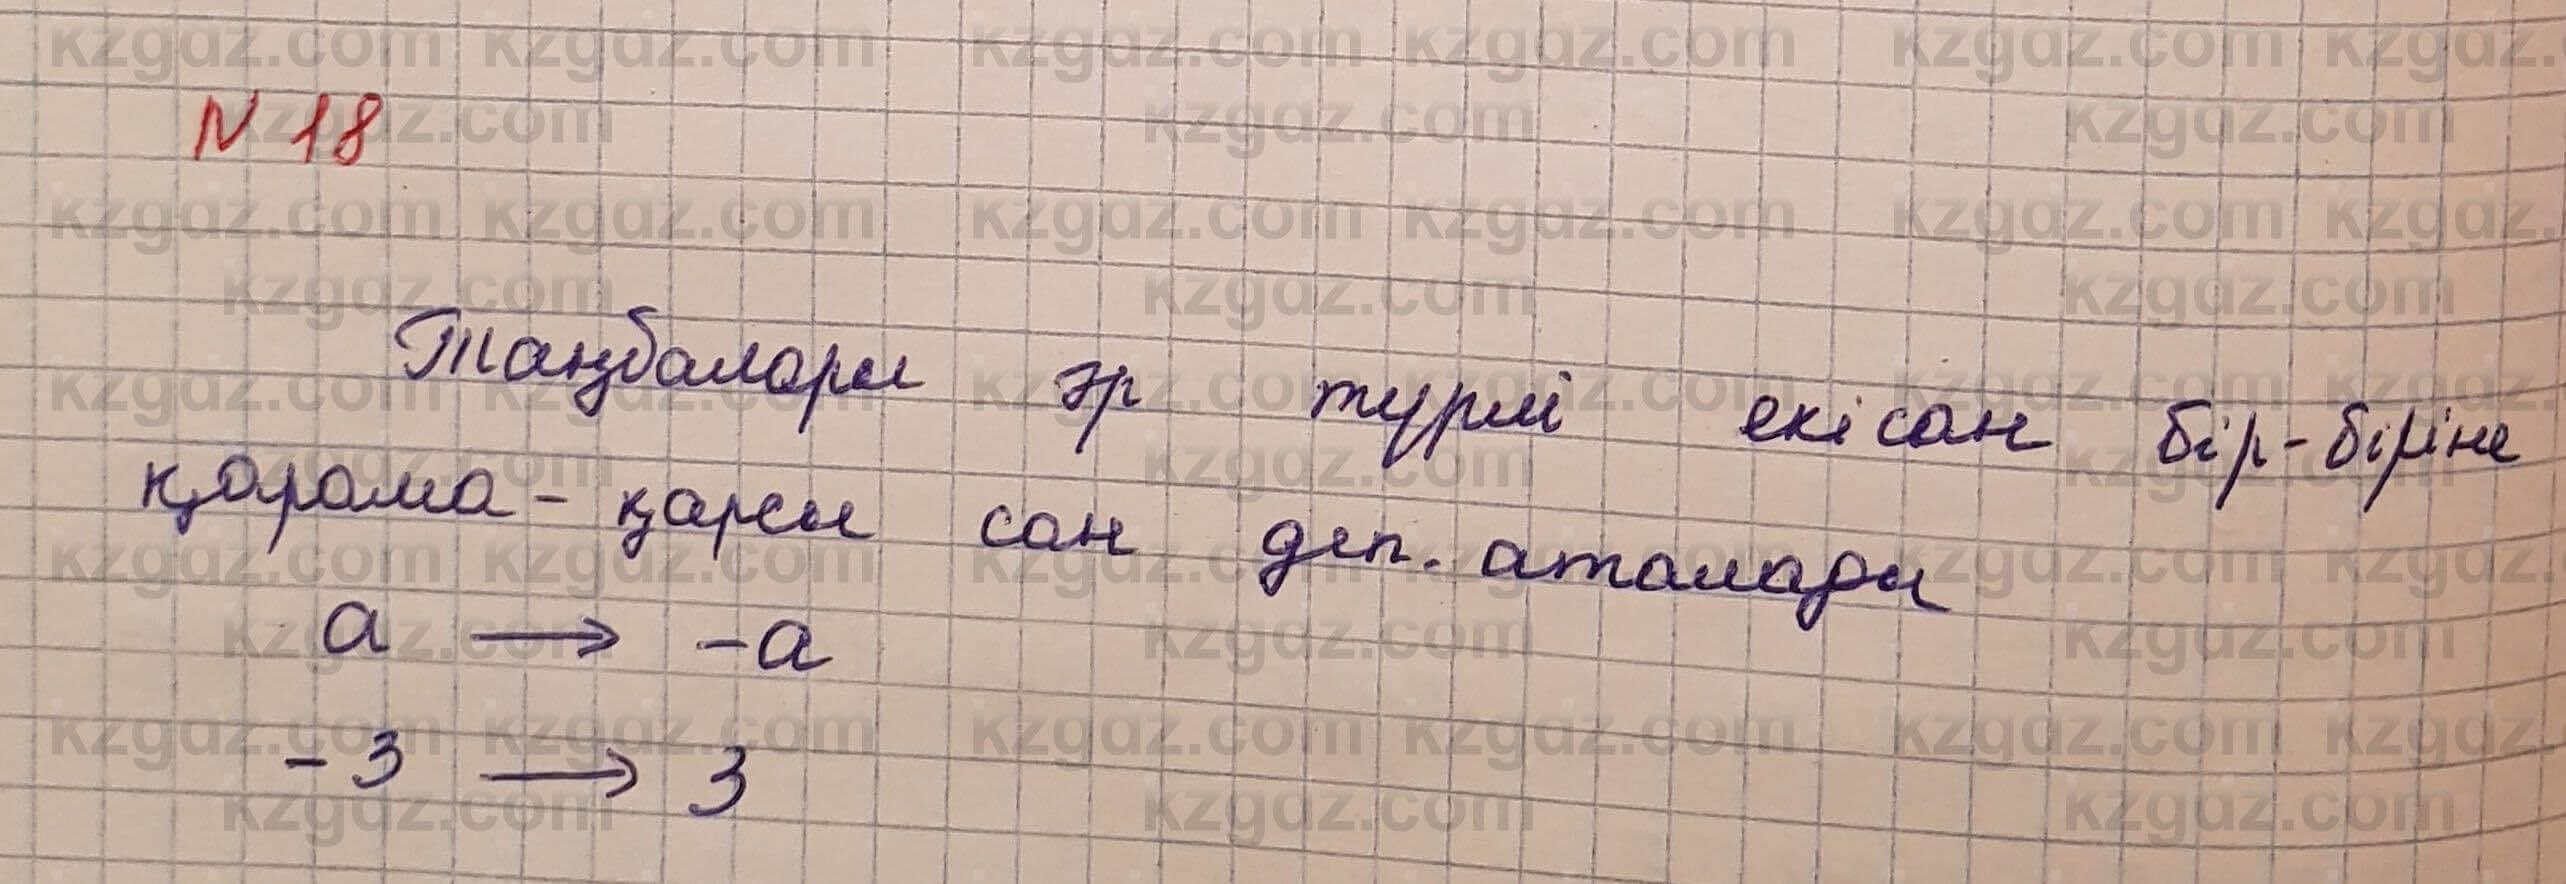 N 18
Таңбалары әр түрлі екі сан бір-біріне
қарама-қарсы сан деп. аталады
a → -a
-3 → 3